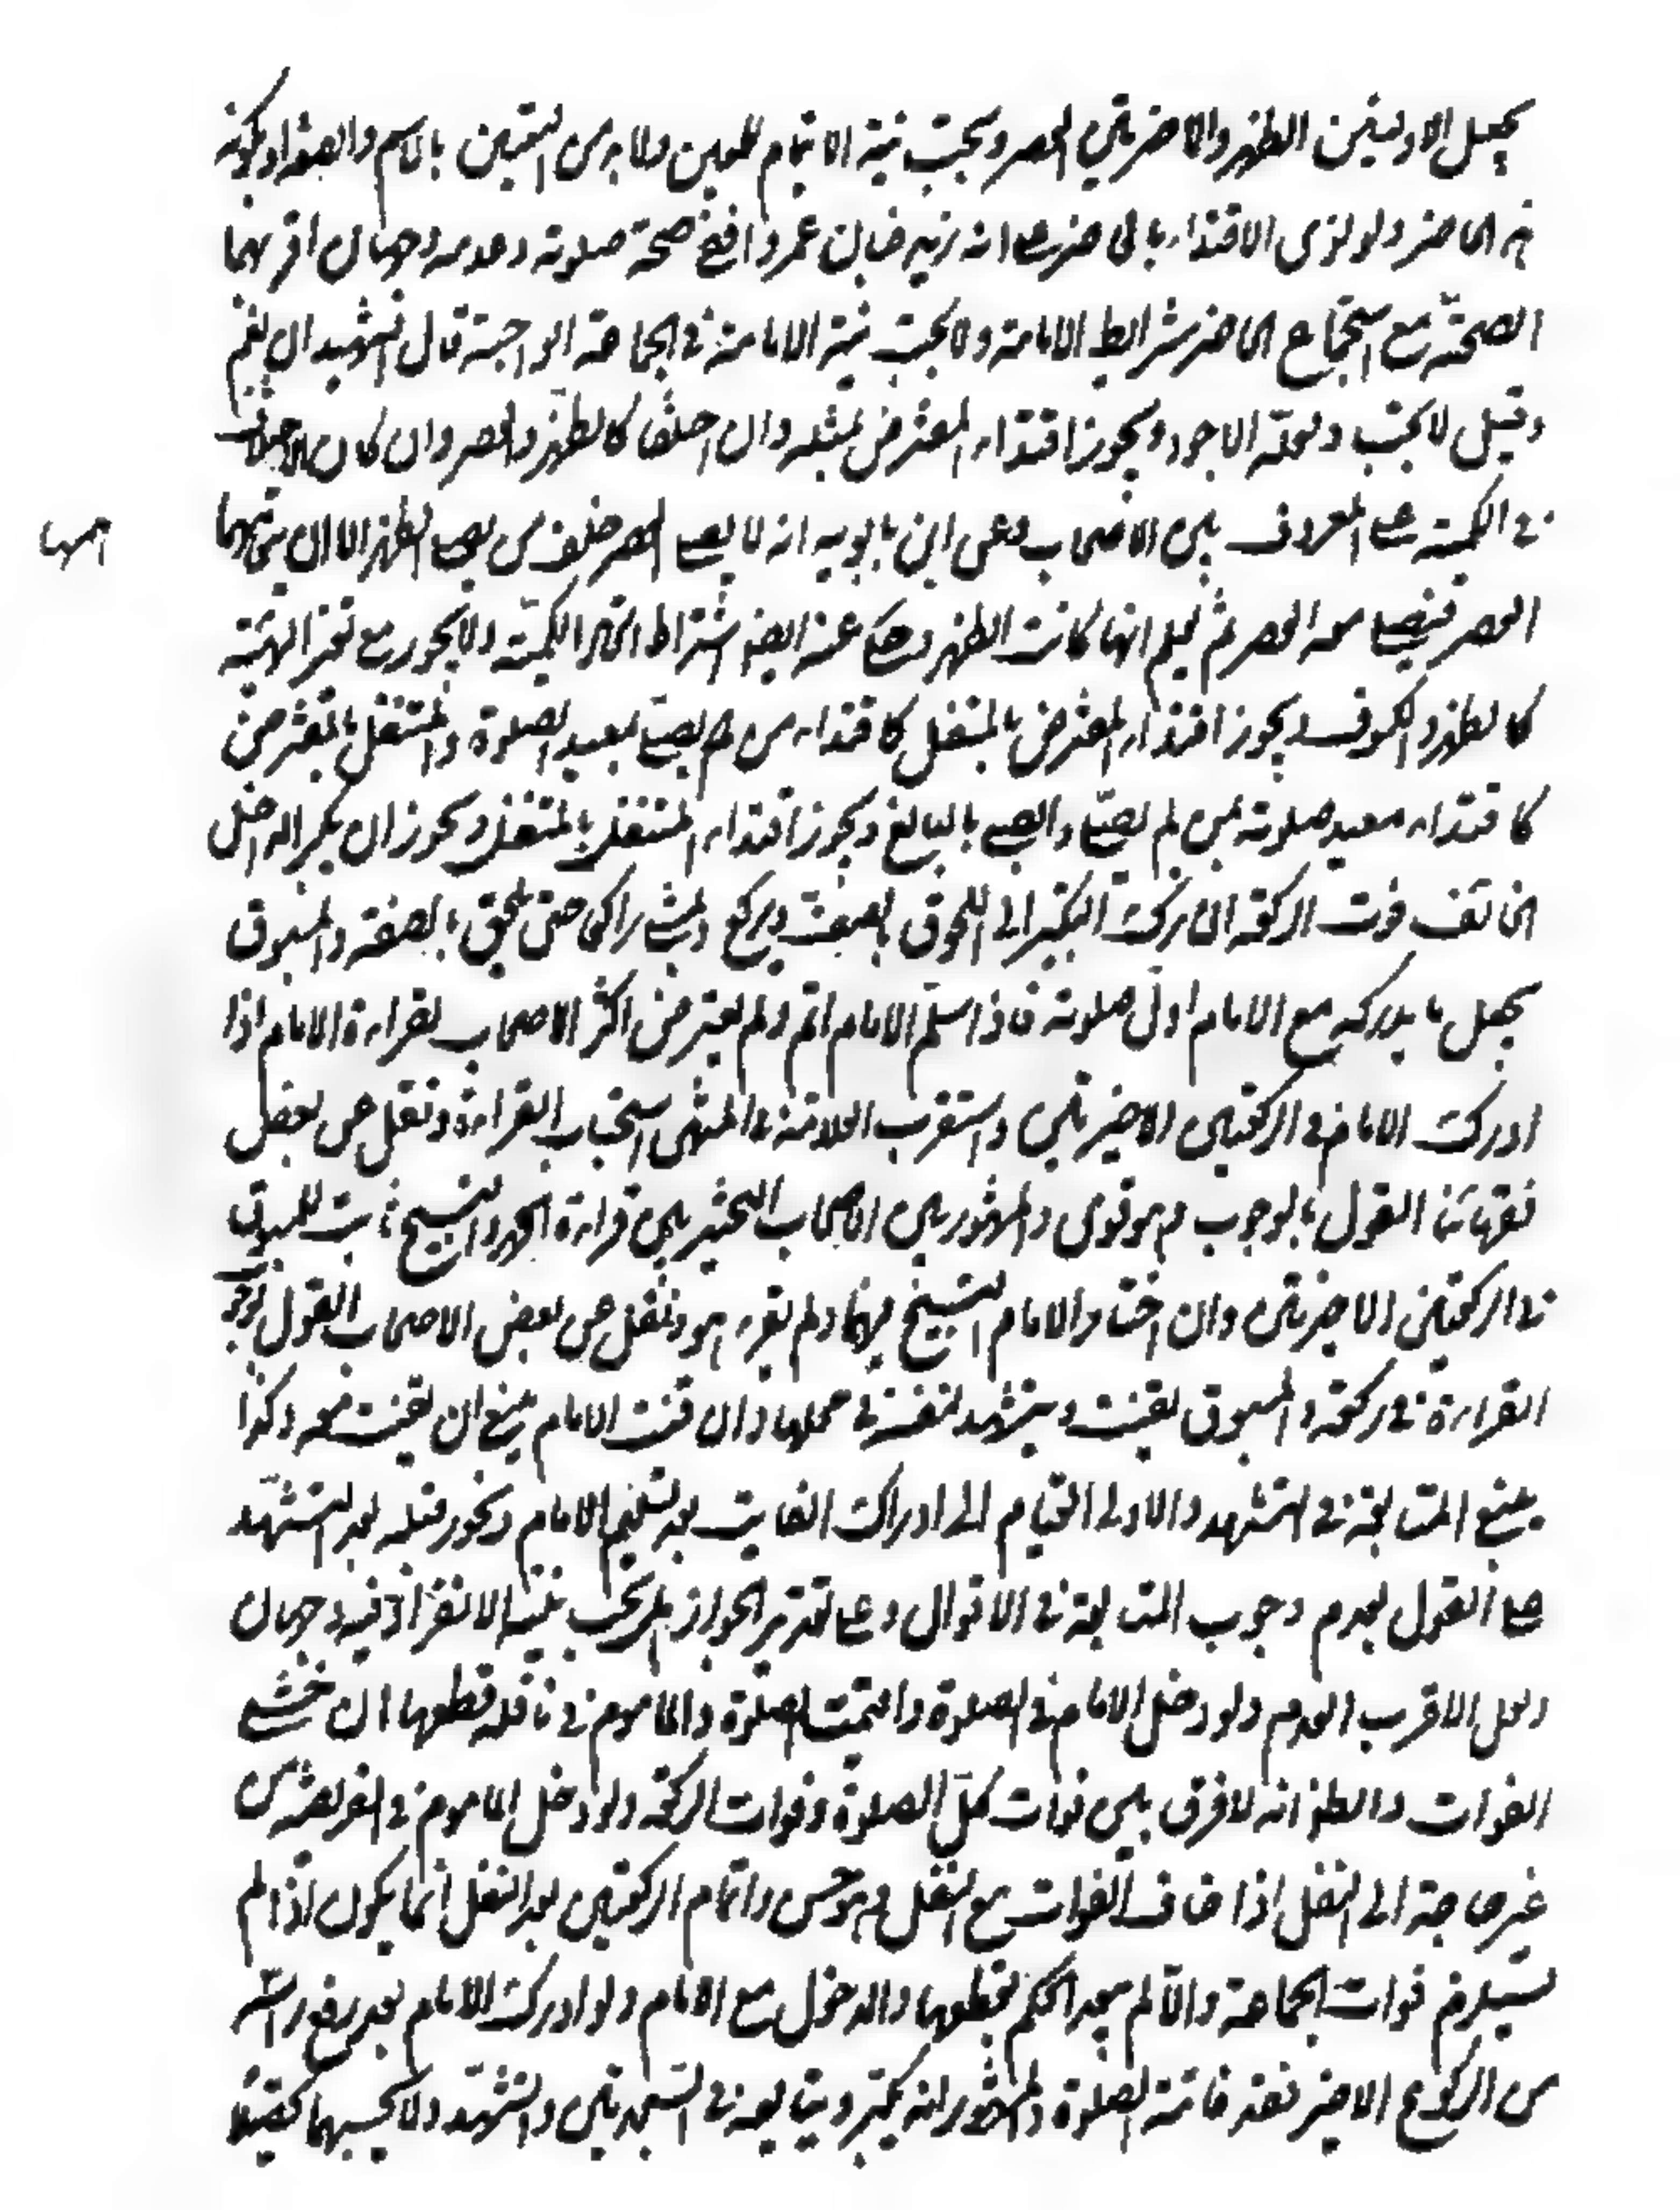 يجعل الاوليين الظهر والاخيرتين العصر ويجب نية الايتمام للمعين ولا بد من التعيين بالاسم والصفة او بكونه
هو الحاضر ولو نوى الاقتداء بالحاضر على انه زيد فبان عمروا ففي صحة صلوته وعدمه وجهان اقربهما
الصحة مع استجماع الحاضر شرايط الامامة ولا يجب نية الامامة في الجماعة الواجبة قال الشهيد ان نعم
وقيل لا يجب ولعله الاجود ويجوز اقتداء المفترض بمثله وان اختلفا كالظهر والعصر وان كان
في الكمية على المعروف بين الاصحاب وعن ابن بابويه انه لا يصلي العصر خلف من يصلي الظهر الا ان يتوهمها
العصر فيصلي معه العصر ثم يعلم انها كانت الظهر وحكي عنه ايضا اشتراط اتحاد الكمية ولا يجوز مع تغير الهيئة
كالظهر والكسوف ويجوز اقتداء المفترض بالمتنفل كاقتداء من لم يصل بمعيد الصلوة والمتنفل بالمفترض
كاقتداء معيد صلوته بمن لم يصل والصبي بالبالغ ويجوز اقتداء المتنفل بالمتنفل ويجوز ان يكبر الداخل
الخائف فوت الركعة ان ترك التكبير الى اللحوق بالصف ويركع ويمشي راكعا حتى يلحق بالصف والمسبوق
يجعل ما يدركه مع الامام اول صلوته فاذا سلم الامام اتم ولم يتعرض اكثر الاصحاب لقراءة الامام اذا
ادرك الامام في الركعتين الاخيرتين واستقرب العلامة في المنتهى استحباب القراءة ونقل عن بعض
فقهائنا القول بالوجوب وهو قوي والمشهور بين الاصحاب التخيير بين قراءة الحمد والتسبيح ثابت للمسبوق
في الركعتين الاخيرتين وان اختار الامام التسبيح فيهما ولم يقرء هو ونقل عن بعض الاصحاب القول بوجوب
القراءة في ركعة والمسبوق يقنت ويتشهد لنفسه في محلها وان قنت الامام ينبغي ان يقنت معه وكذا
ينبغي المتابعة في التشهد والاولى القيام الى ادراك الفايت بعد تسليم الامام ويجوز قبله بعد التشهد
على القول بعدم وجوب المتابعة في الاقوال وعلى تقدير الجواز هل يجب نية الانفراد فيه وجهان
ولعل الاقرب العدم ولو دخل الامام في الصلوة واقيمت الصلوة والماموم في نافلة قطعها ان خشي
الفوات والظ انه لا فرق بين فوات كل الصلوة وفوات الركعة ولو دخل الماموم في الفريضة من
غير حاجة الى النقل اذا خاف الفوات مع النقل وهو حسن واتمام الركعتين بعد النقل انما يكون اذا لم
يستلزم فوات الجماعة والا لم يبعد الحكم بقطعها والدخول مع الامام ولو ادرك الامام بعد رفع راسه
من الركوع الاخير فقد فاتته الصلوة والمشهور انه يكبر ويتابعه في السجدتين والتشهد ولا يحسبهما